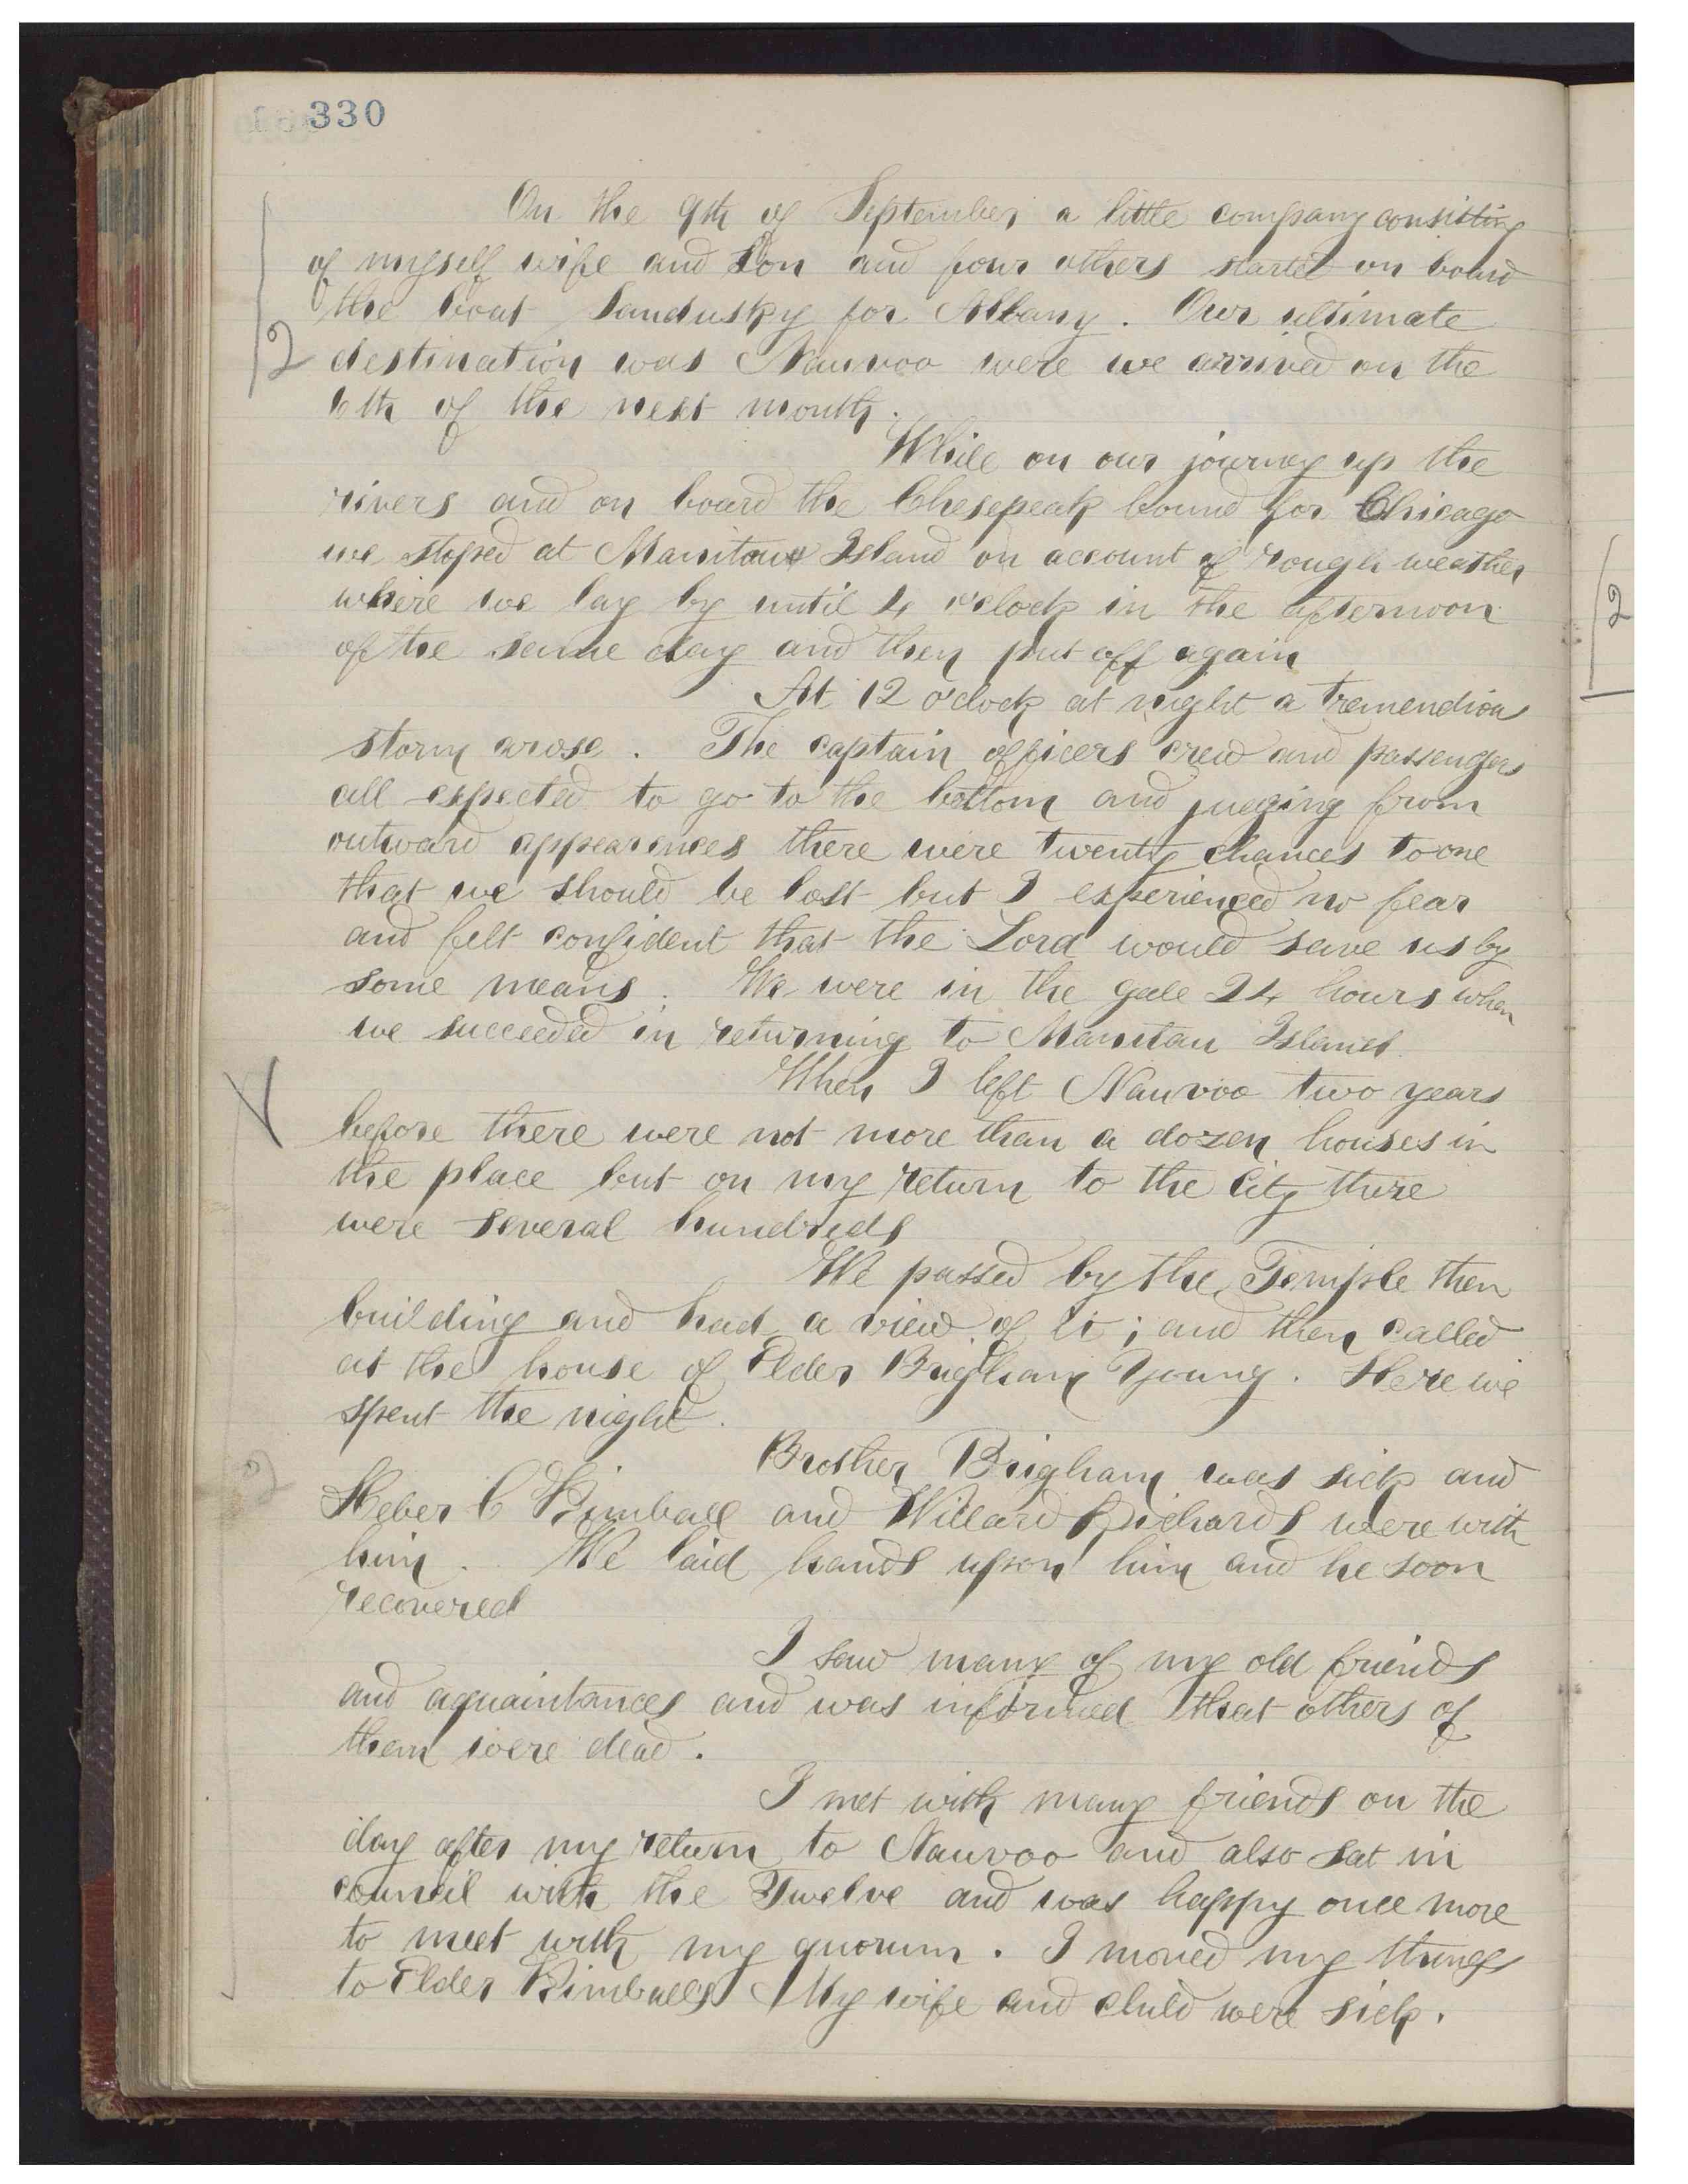 330
On the 9th of September, a little company consisting
of myself wife and Son and four others started on board
the boat Sandusky for Albany. Our ultimate
2 destination was Nauvoo were we arrived on the
6th of the next month.
While on our journey up the
rivers and on board the Chesepeak bound for Chicago
we stoped at Manitou Island on account of rough weather
where we lay by until 4 o'clock in the afternoon
of the same day and then put off again
At 12 o'clock at night a tremendious
storm arose. The captain officers crew and passengers
all expected to go to the bottom and juging from
outward appearences there were twenty chances to one
that we should be lost but I experienced no fear
and felt confident that the Lord would save us by
some means. We were in the gale 24 hours when
we succeeded in returning to Manitau Island.
When I left Nauvoo two years
before there were not more than a dozen houses in
the place but on my return to the City there
were several hundreds
We passed by the Temple then
building and had a view of it; and then called
at the house of Elder Brigham Young. Here we
spent the night.
Brother Brigham was sick and
Heber C Kimball and Willard Richards were with
him. We laid hands upon him and he soon
recovered
I saw many of my old friends
and aquaintances and was informed that others of
them were dead.
I met with many friends on the
day after my return to Nauvoo and also sat in
council with the Twelve and was happy once more
to meet with my quorum. I moved my things
to Elder Kimballs My wife and child were sick.
2